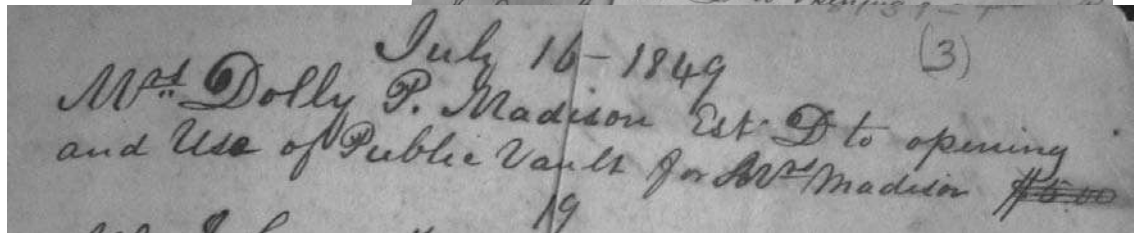 July 16 - 1849
(3)
Mrs Dolly P. Madison Est. D to opening
and Use of Public Vault for Mrs Madison $5.00
19